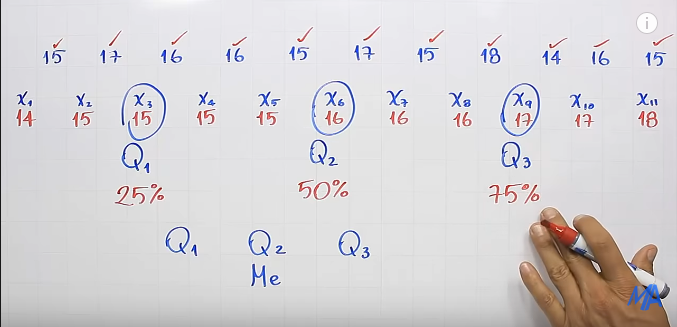 15 17 16 16 15 17 15 18 14 16 15
x₁ x₂ x₃ x₄ x₅ x₆ x₇ x₈ x₉ x₁₀ x₁₁
14 15 15 15 15 16 16 16 17 17 18
Q₁ Q₂ Q₃
25% 50% 75%
Q₁ Q₂ Q₃
Me
MA